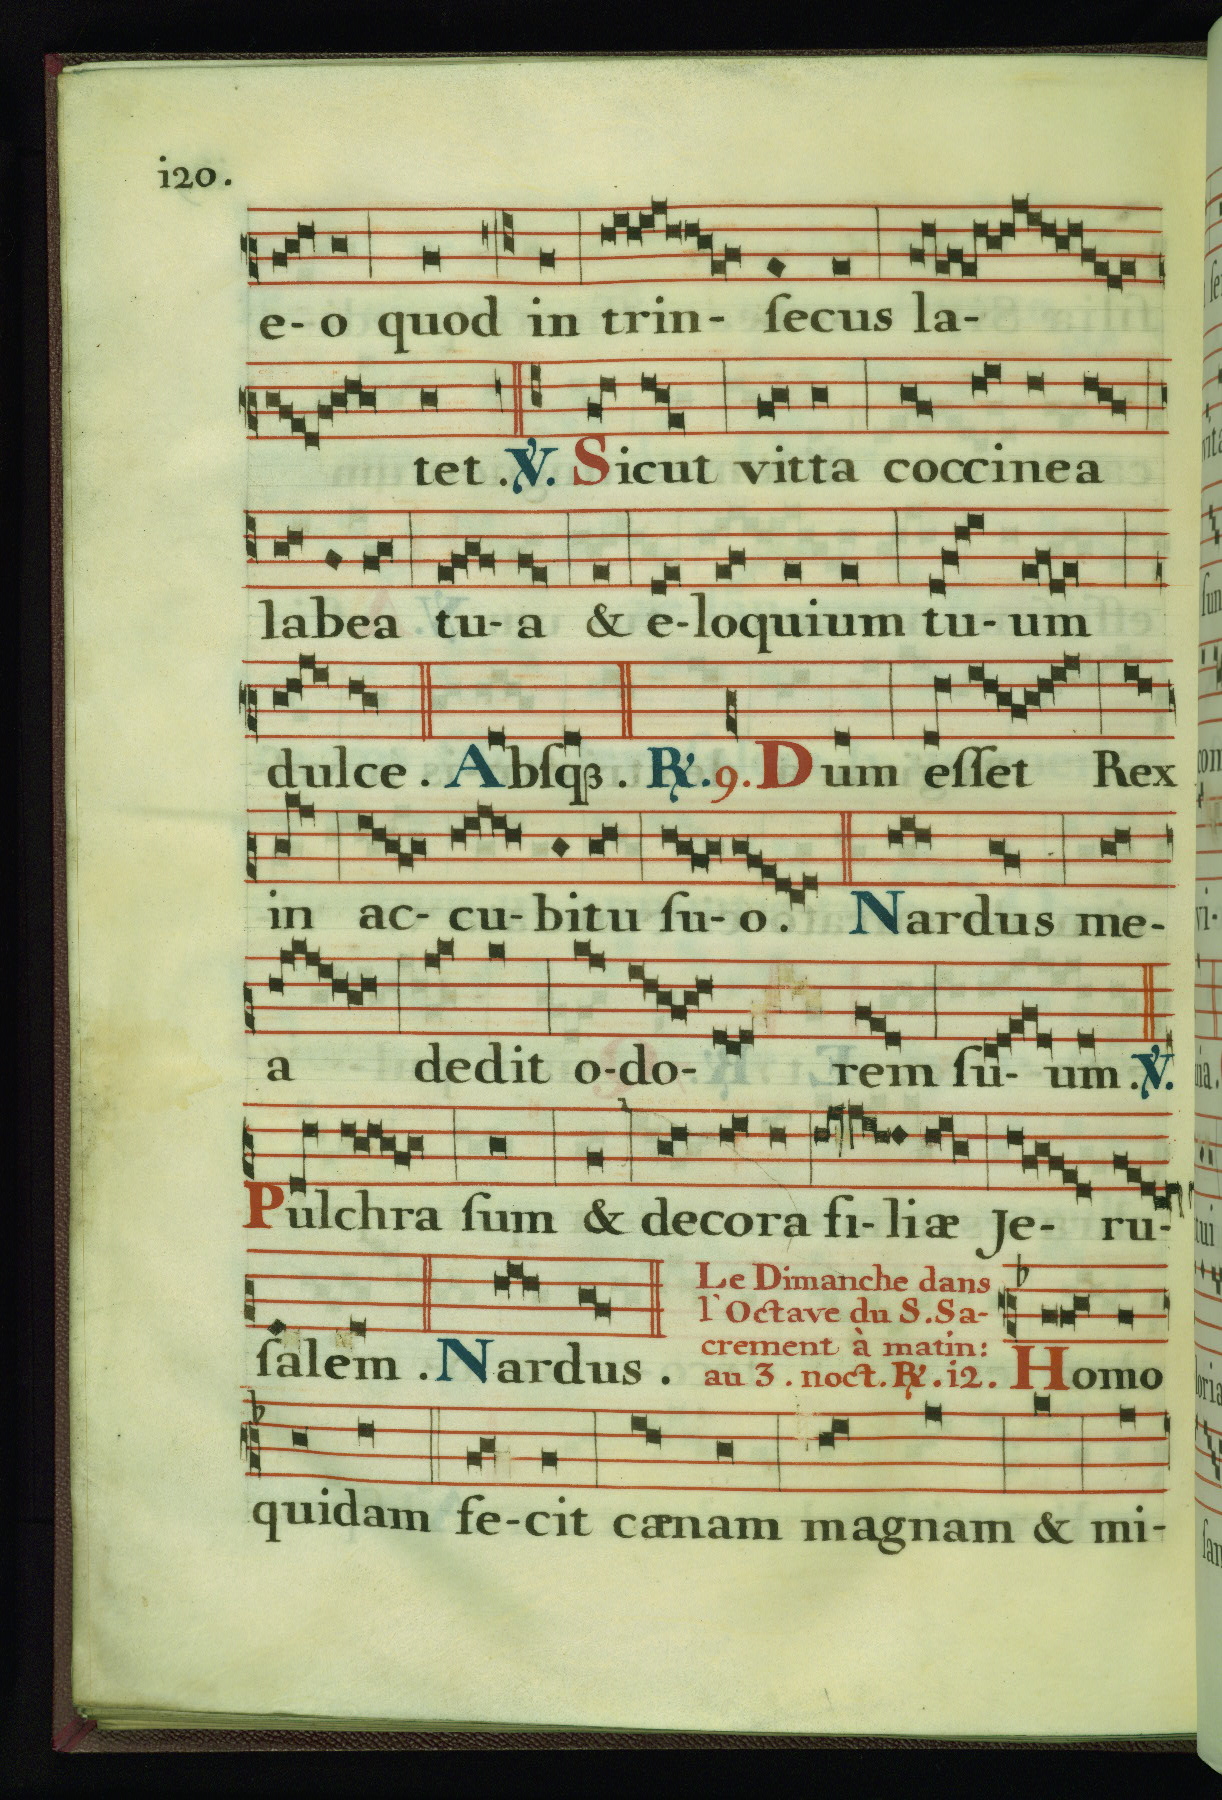 i20.
e-o quod in trin- ſecus la-
tet .℣. Sicut vitta coccinea
labea tu-a & e-loquium tu-um
dulce. Abſqꝫ. ℟.9. Dum eſſet Rex
in ac-cu-bitu ſu-o. Nardus me-
a dedit o-do- rem ſu-um.℣.
Pulchra ſum & decora fi-liæ Je-ru-
ſalem. Nardus.
Le Dimanche dans
l'Octave du S.Sa-
crement à matin:
au 3. noct. ℟. i2. Homo
quidam fe-cit cænam magnam & mi-